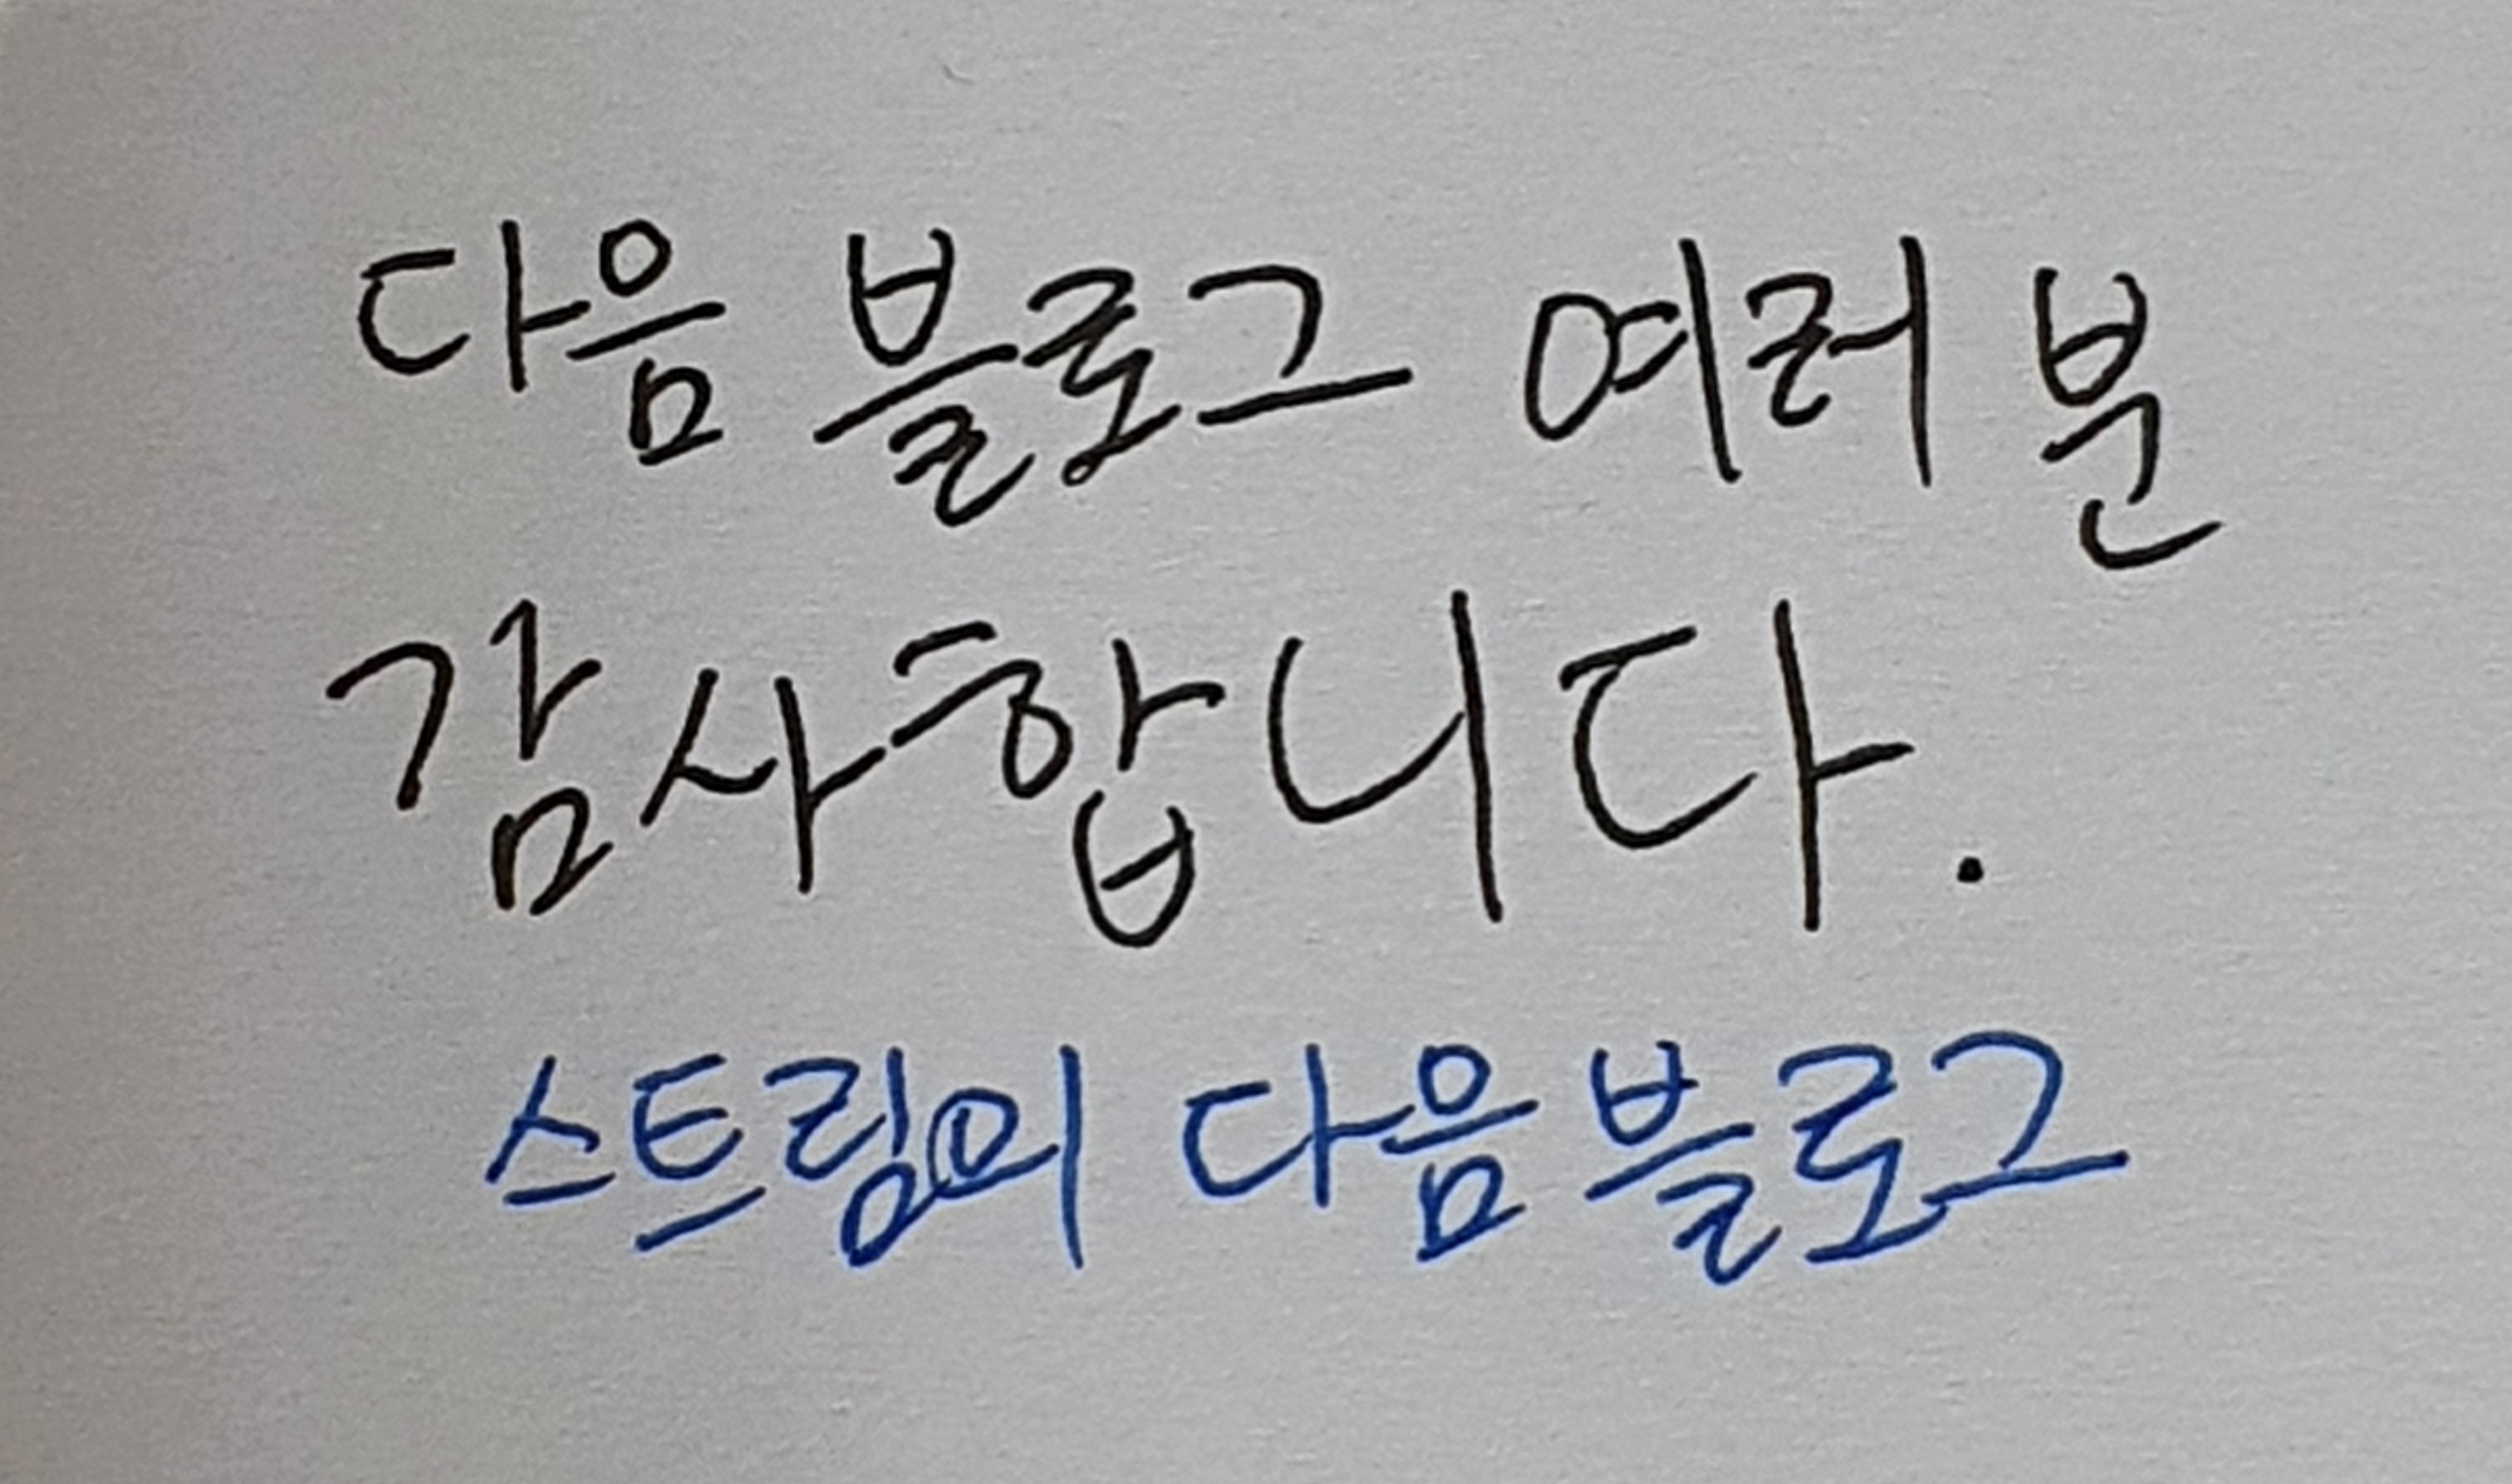 다음 블로그 여러분
감사합니다.
스트링의 다음블로그